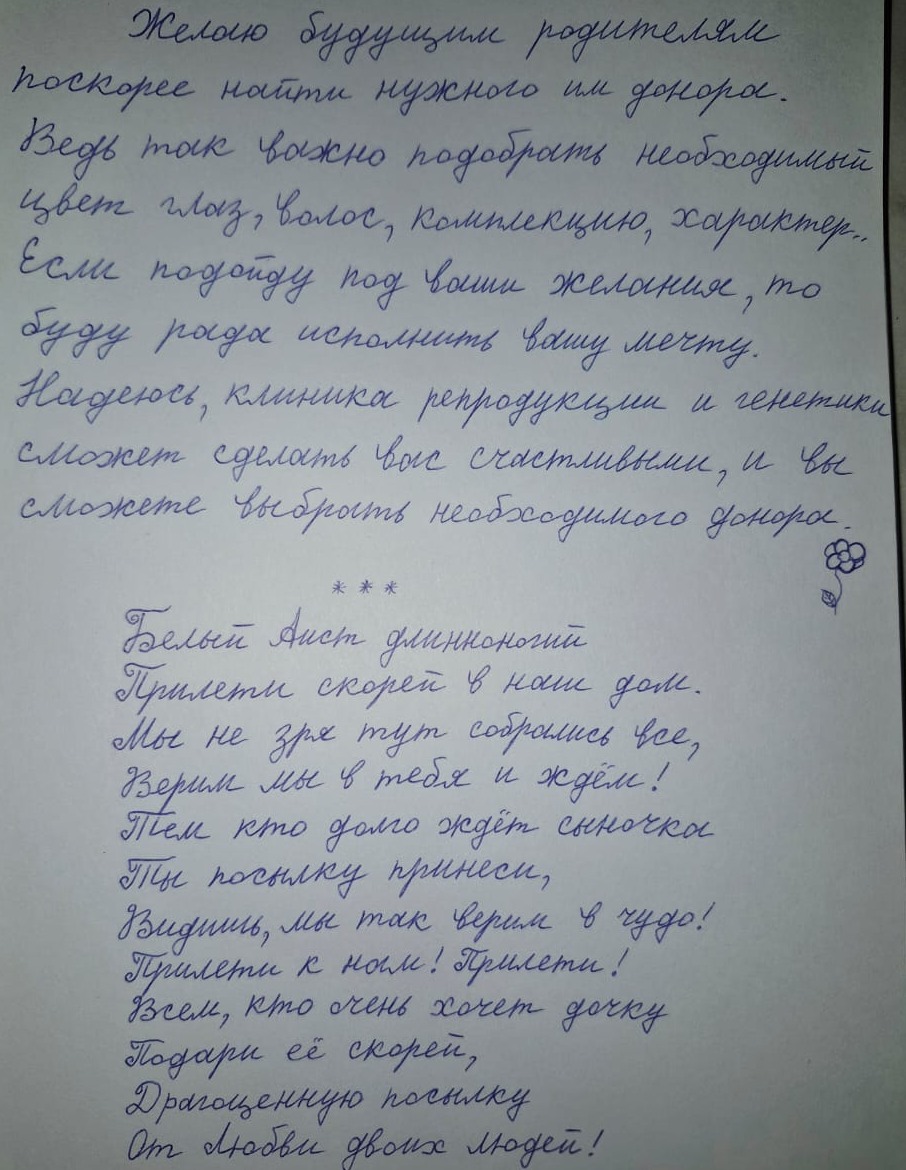 Желаю будущим родителям
поскорее найти нужного им донора.
Ведь так важно подобрать необходимый
цвет глаз, волос, комплекцию, характер..
Если подойду под ваши желания, то
буду рада исполнить вашу мечту.
Надеюсь, клиника репродукции и генетики
сможет сделать вас счастливыми, и вы
сможете выбрать необходимого донора.
* * *
Белый Аист длинноногий
Прилети скорей в наш дом.
Мы не зря тут собрались все,
Верим мы в тебя и ждём!
Тем кто долго ждёт сыночка
Ты посылку принеси,
Видишь, мы так верим в чудо!
Прилети к нам! Прилети!
Всем, кто очень хочет дочку
Подари её скорей,
Драгоценную посылку
От Любви двоих людей!